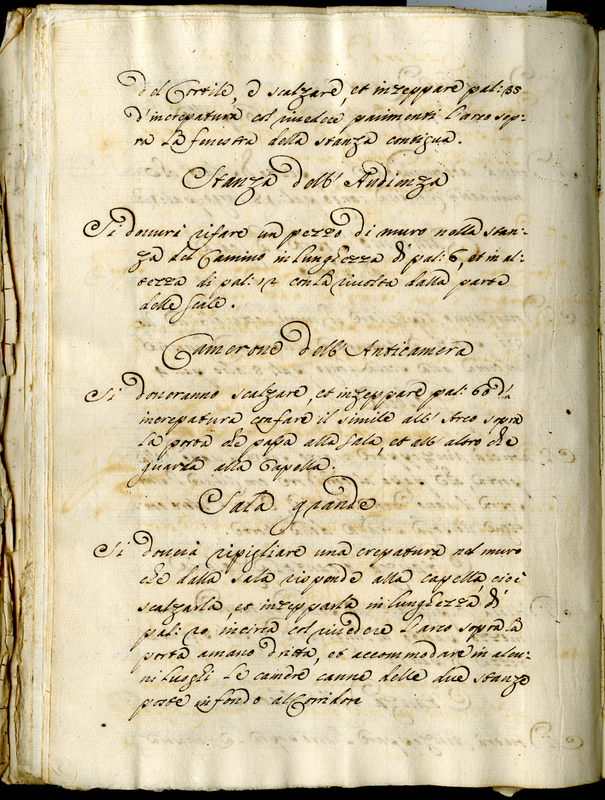 del Cortile, e scalzare, et inzeppare pal: 35
d'increpatura col rivedere parimenti l'arco sop-
ra la finestra della stanza contigua.
Stanza dell'Audienza
Si dovrà rifare un pezzo di muro nella stan-
za del Camino in lunghezza di pal: 6, et in al-
tezza di pal: 12 con la rivolta dalla parte
delle scale.
Camerone dell'Anticamera
Si doveranno scalzare, et inzeppare pal: 60 d'
increpatura con fare il simile all'Arco sopra
la porta che passa alla sala, et all'altro che
guarda alla Capella.
Sala grande
Si doverà ripigliare una crepatura nel muro
che dalla sala risponde alla capella, cioè
scalzarla, et inzepparla in lunghezza di
pal: 20, incirca col rivedere l'arco sopra la
porta a mano dritta, et accommodare in alcu-
ni luoghi le camere canne delle due stanze
poste in fondo al Corridore